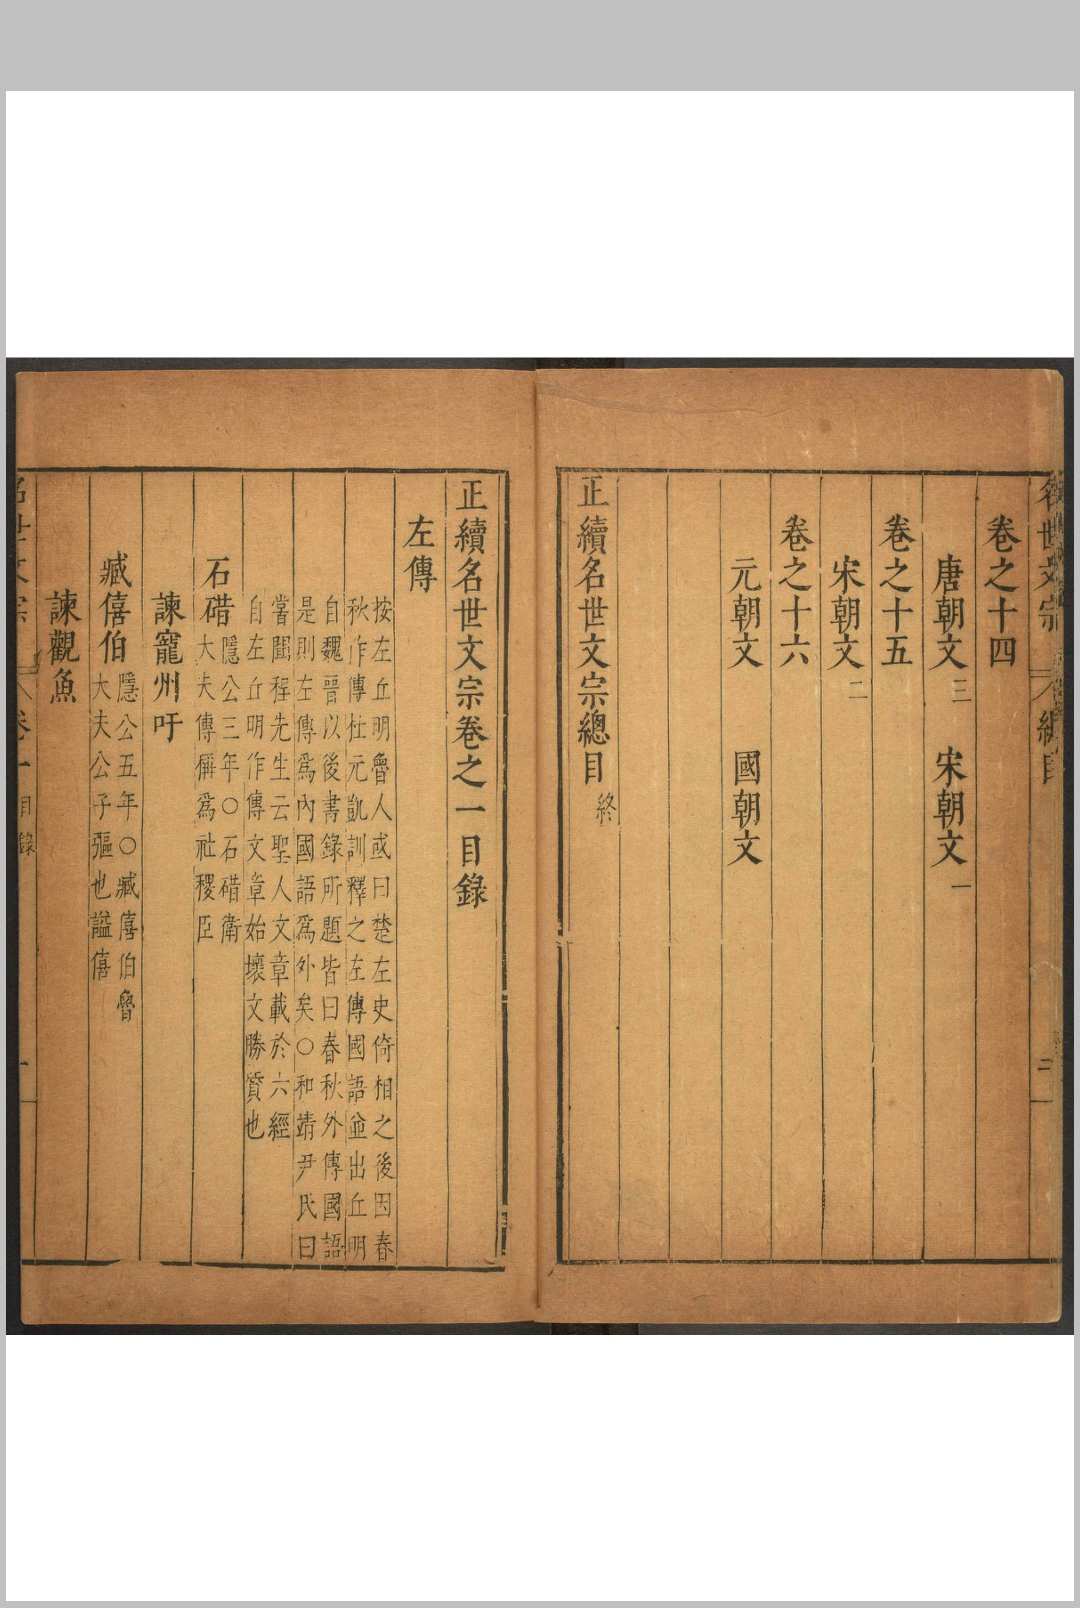 名世文宗 總目 二
卷之十四
唐朝文三 宋朝文一
卷之十五
宋朝文二
卷之十六
元朝文 國朝文
正續名世文宗總目終
正續名世文宗卷之一目錄
左傳
按左丘明魯人或曰楚左史倚相之後因春
秋作傳杜元凱訓釋之左傳國語並出丘明
自魏晉以後書錄所題皆曰春秋外傳國語
是則左傳爲內國語爲外矣○和靖尹氏曰
嘗聞程先生云聖人文章載於六經
自左丘明作傳文章始壞文勝質也
石碏隱公三年○石碏衛
大夫傳稱爲社稷臣
諫寵州吁
臧僖伯隱公五年○臧僖伯魯
大夫公子彄也諡僖
諫觀魚
名世文宗 卷一 目錄 一